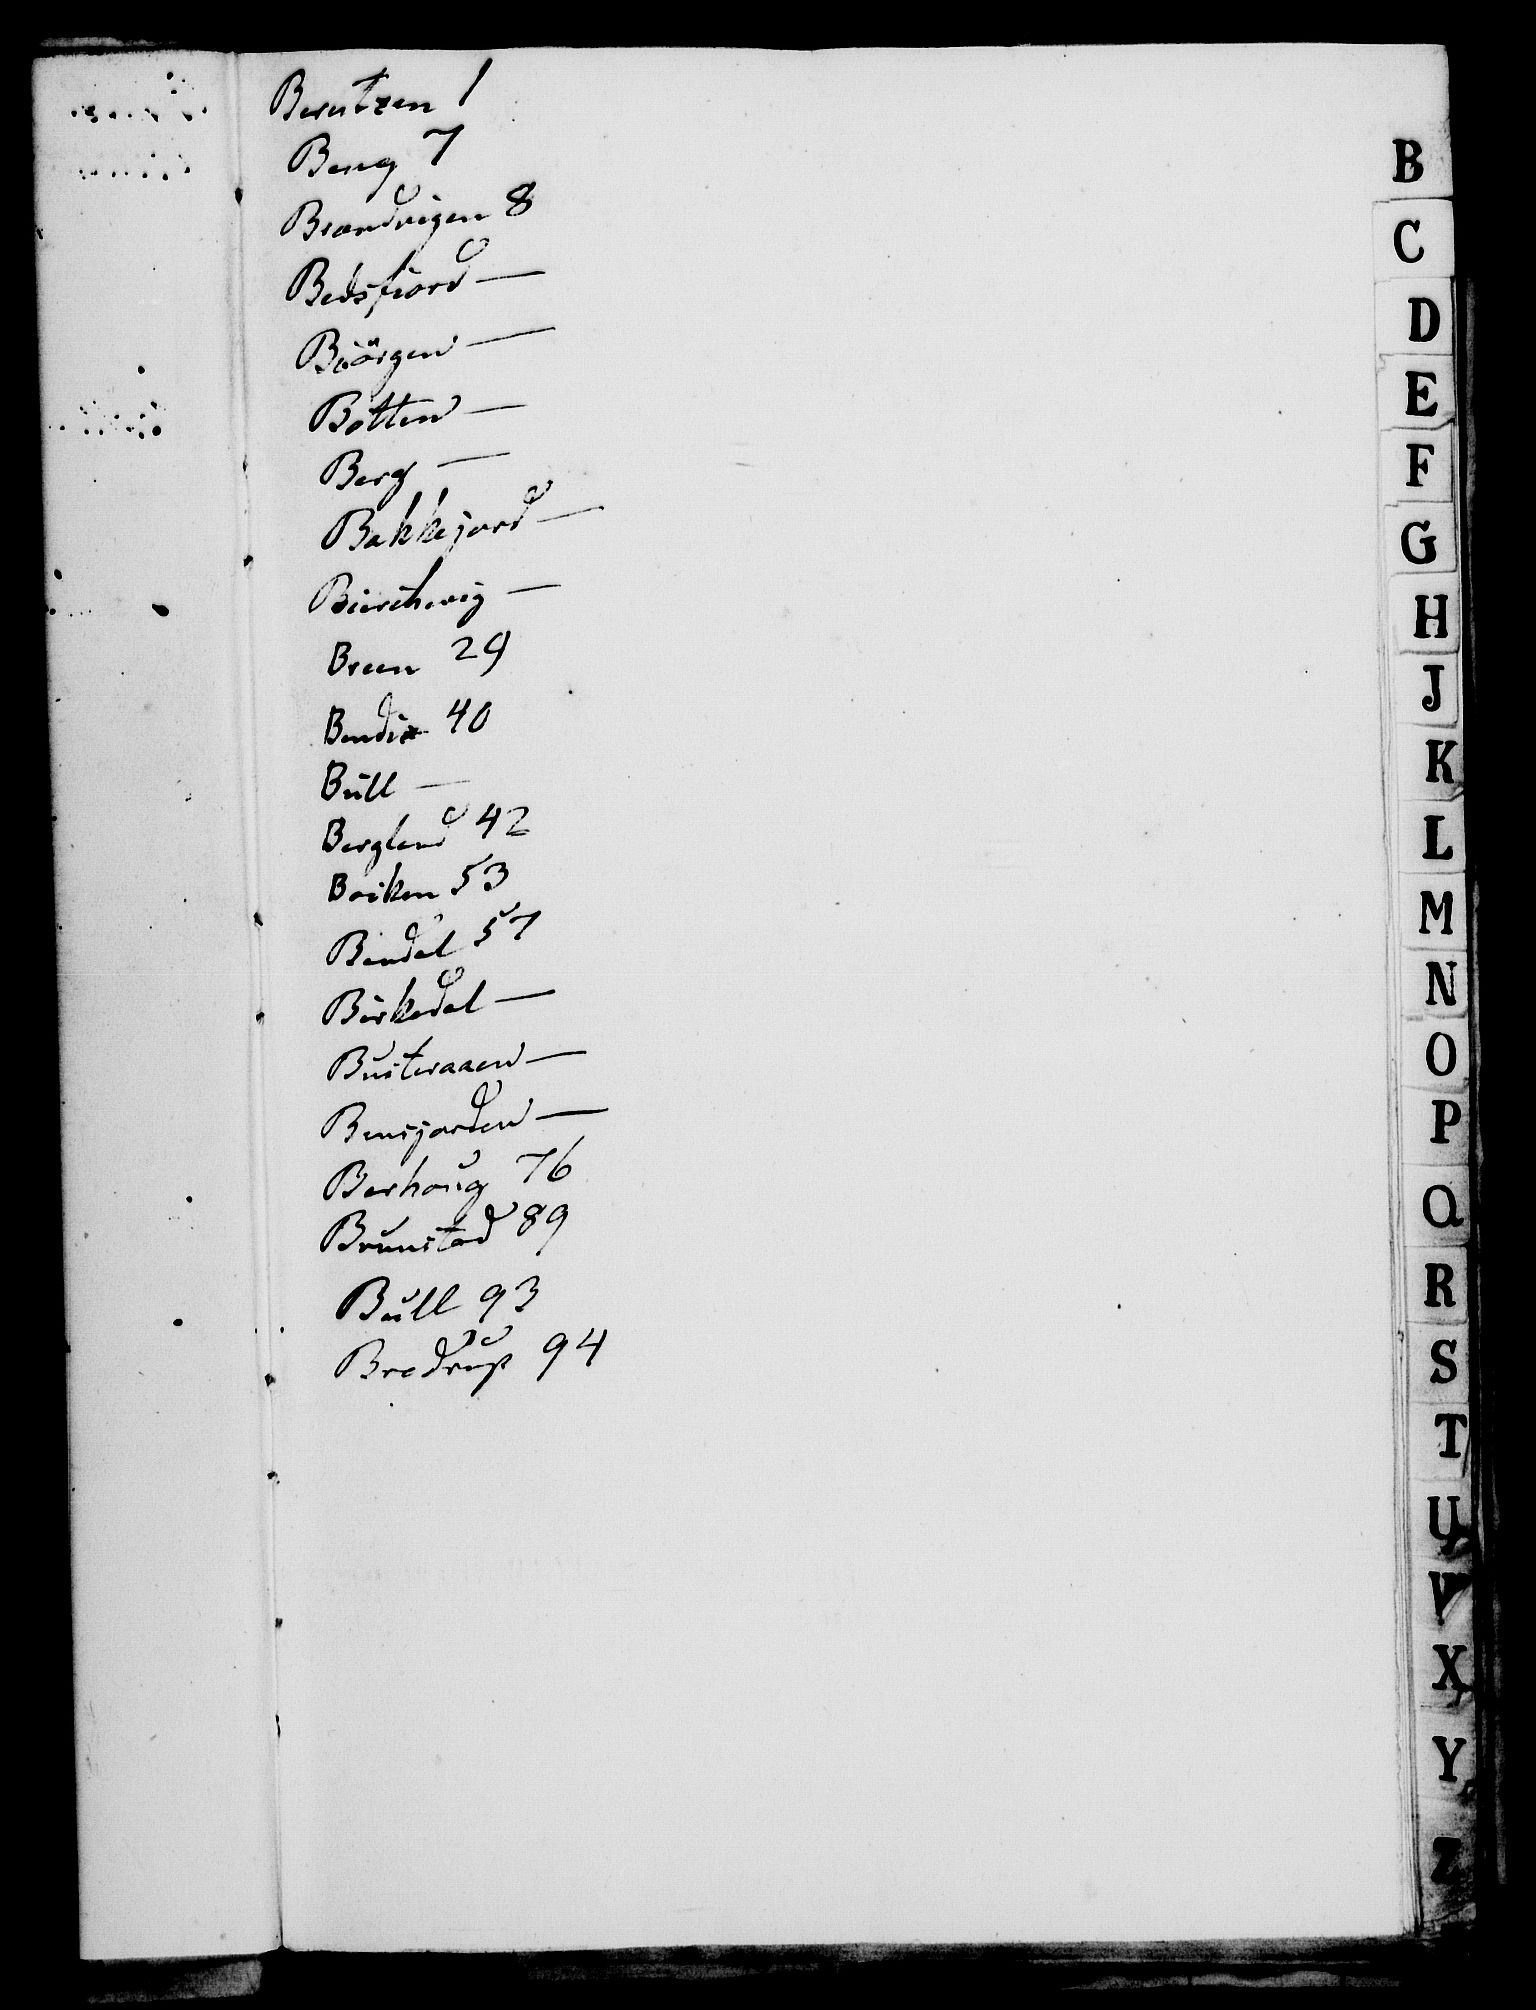 Berntzen 1
Beng 7
Brandvigen 8
Bedsfiord —
Biörgen —
Botten —
Berg —
Bakkejord —
Bierthwig —
Breen 29
Bendix 40
Bull —
Bergland 42
Boiken 53
Bendal 57
Birkedal —
Busteraaen —
Bensjorden —
Berhoug 76
Brunstad 89
Bull 93
Brodrup 94
B
C
D
E
F
G
H
J
K
L
M
N
O
P
Q
R
S
T
U
V
X
Y
Z